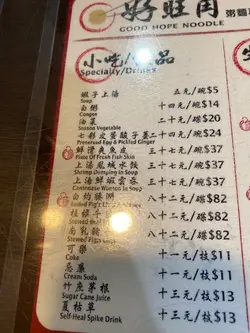 好旺角 粥麵
GOOD HOPE NOODLE
小吃/ 品
Specialty/Drinks
蝦子上湯 五元/碗$5
Soup
白粥 十四元/碗$14
Congee
油菜 二十元/碟$20
Season Vegetable
七彩皮蛋酸子薑 二十四元/碟$24
Preserved Egg & Pickled Ginger
鮮滑爽魚皮 三十七元/碟$37
Plate Of Fresh Fish Skin
上湯鳳城水餃 三十七元/碗$37
Shrimp Dumpling in Soup
上湯鮮蝦雲吞 三十七元/碗$37
Cantonese Wonton In Soup
八十二元/碟$82
八十二元/碟$82
南乳 八十二元/碟$82
Stewed Pig's
可樂 十一元/枝$11
Coke
忌廉 十一元/枝$11
Cream Soda
竹蔗茅根 十三元/枝$13
Sugar Cane Juice
夏枯草 十三元/枝$13
Self-Heal Spike Drink